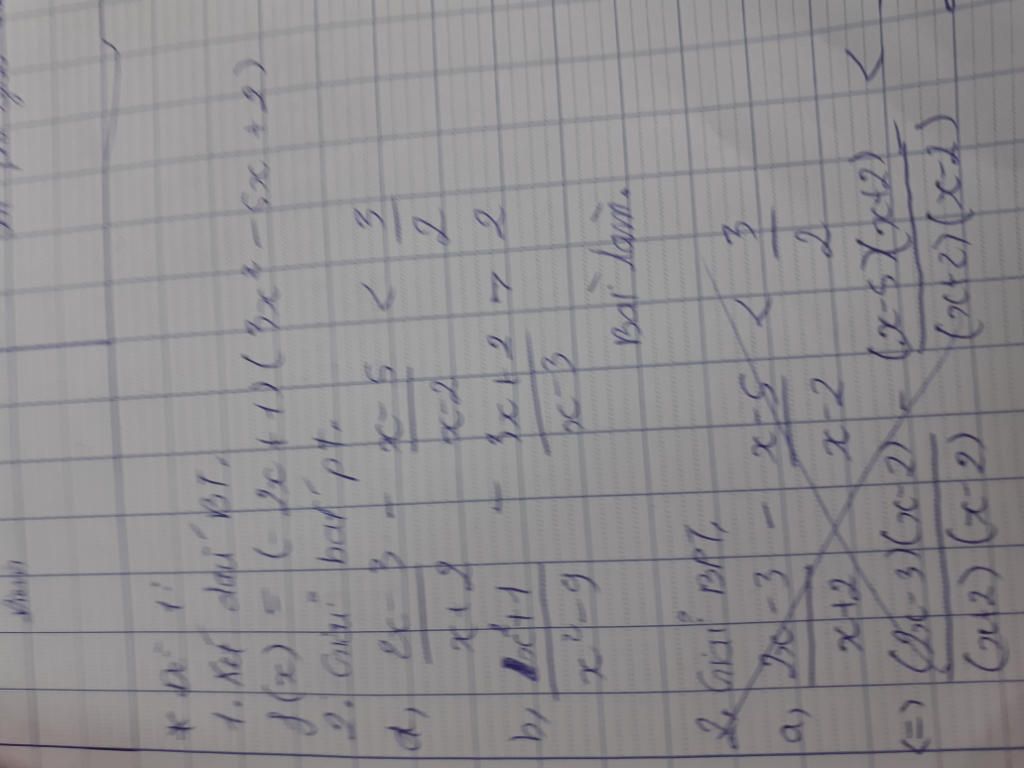 * Đề 1:
1. Xét dấu BT.
f(x) = (-2x+1)(3x² - 5x + 2)
2. Giải bất pt.
a, 2x-3/x+2 - x-5/x-2 < 3/2
b, x²+1/x²-9 - 3x+2/x-3 > 2
Bài làm.
2, Giải BPT,
a, 2x-3/x+2 - x-5/x-2 < 3/2
<=> (2x-3)(x-2)/(x+2)(x-2) - (x-5)(x+2)/(x+2)(x-2) <